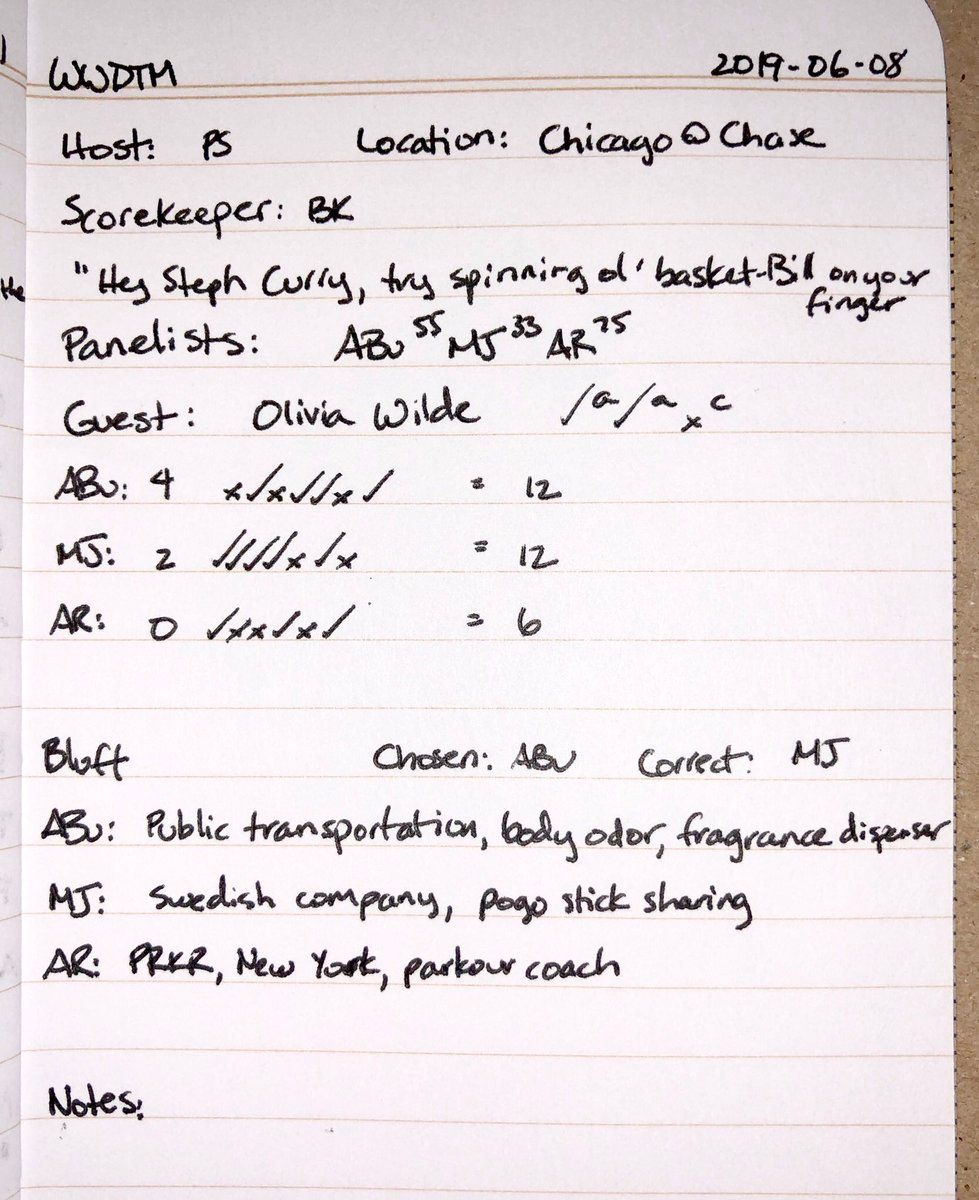 WWDTM 2019-06-08
Host: PS Location: Chicago @ Chase
Scorekeeper: BK
"Hey Steph Curry, try spinning ol' basket-Bill on your
finger
Panelists: ABu 55 MJ 33 AR 75
Guest: Olivia Wilde ✓a ✓a ×c
ABu: 4 ×✓×✓✓×✓ = 12
MJ: 2 ✓✓✓✓×✓× = 12
AR: 0 ✓××✓×✓ = 6
Bluff Chosen: ABu Correct: MJ
ABu: Public transportation, body odor, fragrance dispenser
MJ: Swedish company, pogo stick sharing
AR: PRKR, New York, parkour coach
Notes: